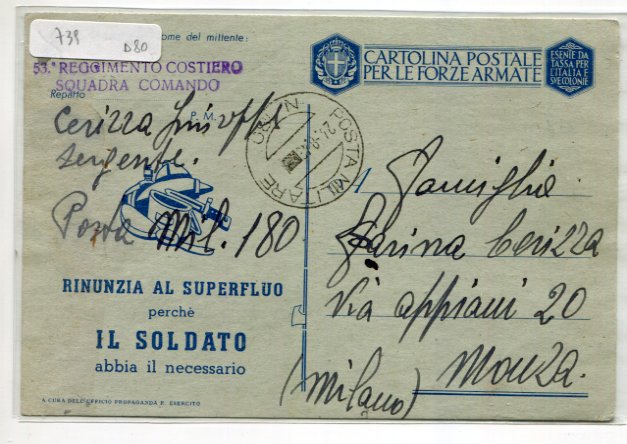 739
D80
ome del mittente:
53.° REGGIMENTO COSTIERO
SQUADRA COMANDO
Reparto
P. M.
Cerizza
Sergente.
Posta Mil. 180
RINUNZIA AL SUPERFLUO
perchè
IL SOLDATO
abbia il necessario
A CURA DELL'UFFICIO PROPAGANDA R. ESERCITO
POSTA MILITARE
CARTOLINA POSTALE
PER LE FORZE ARMATE
ESENTE DA
TASSA PER
L'ITALIA E
SUE COLONIE
Famiglia
Farina Cerizza
Via Appiani 20
Monza.
(Milano)